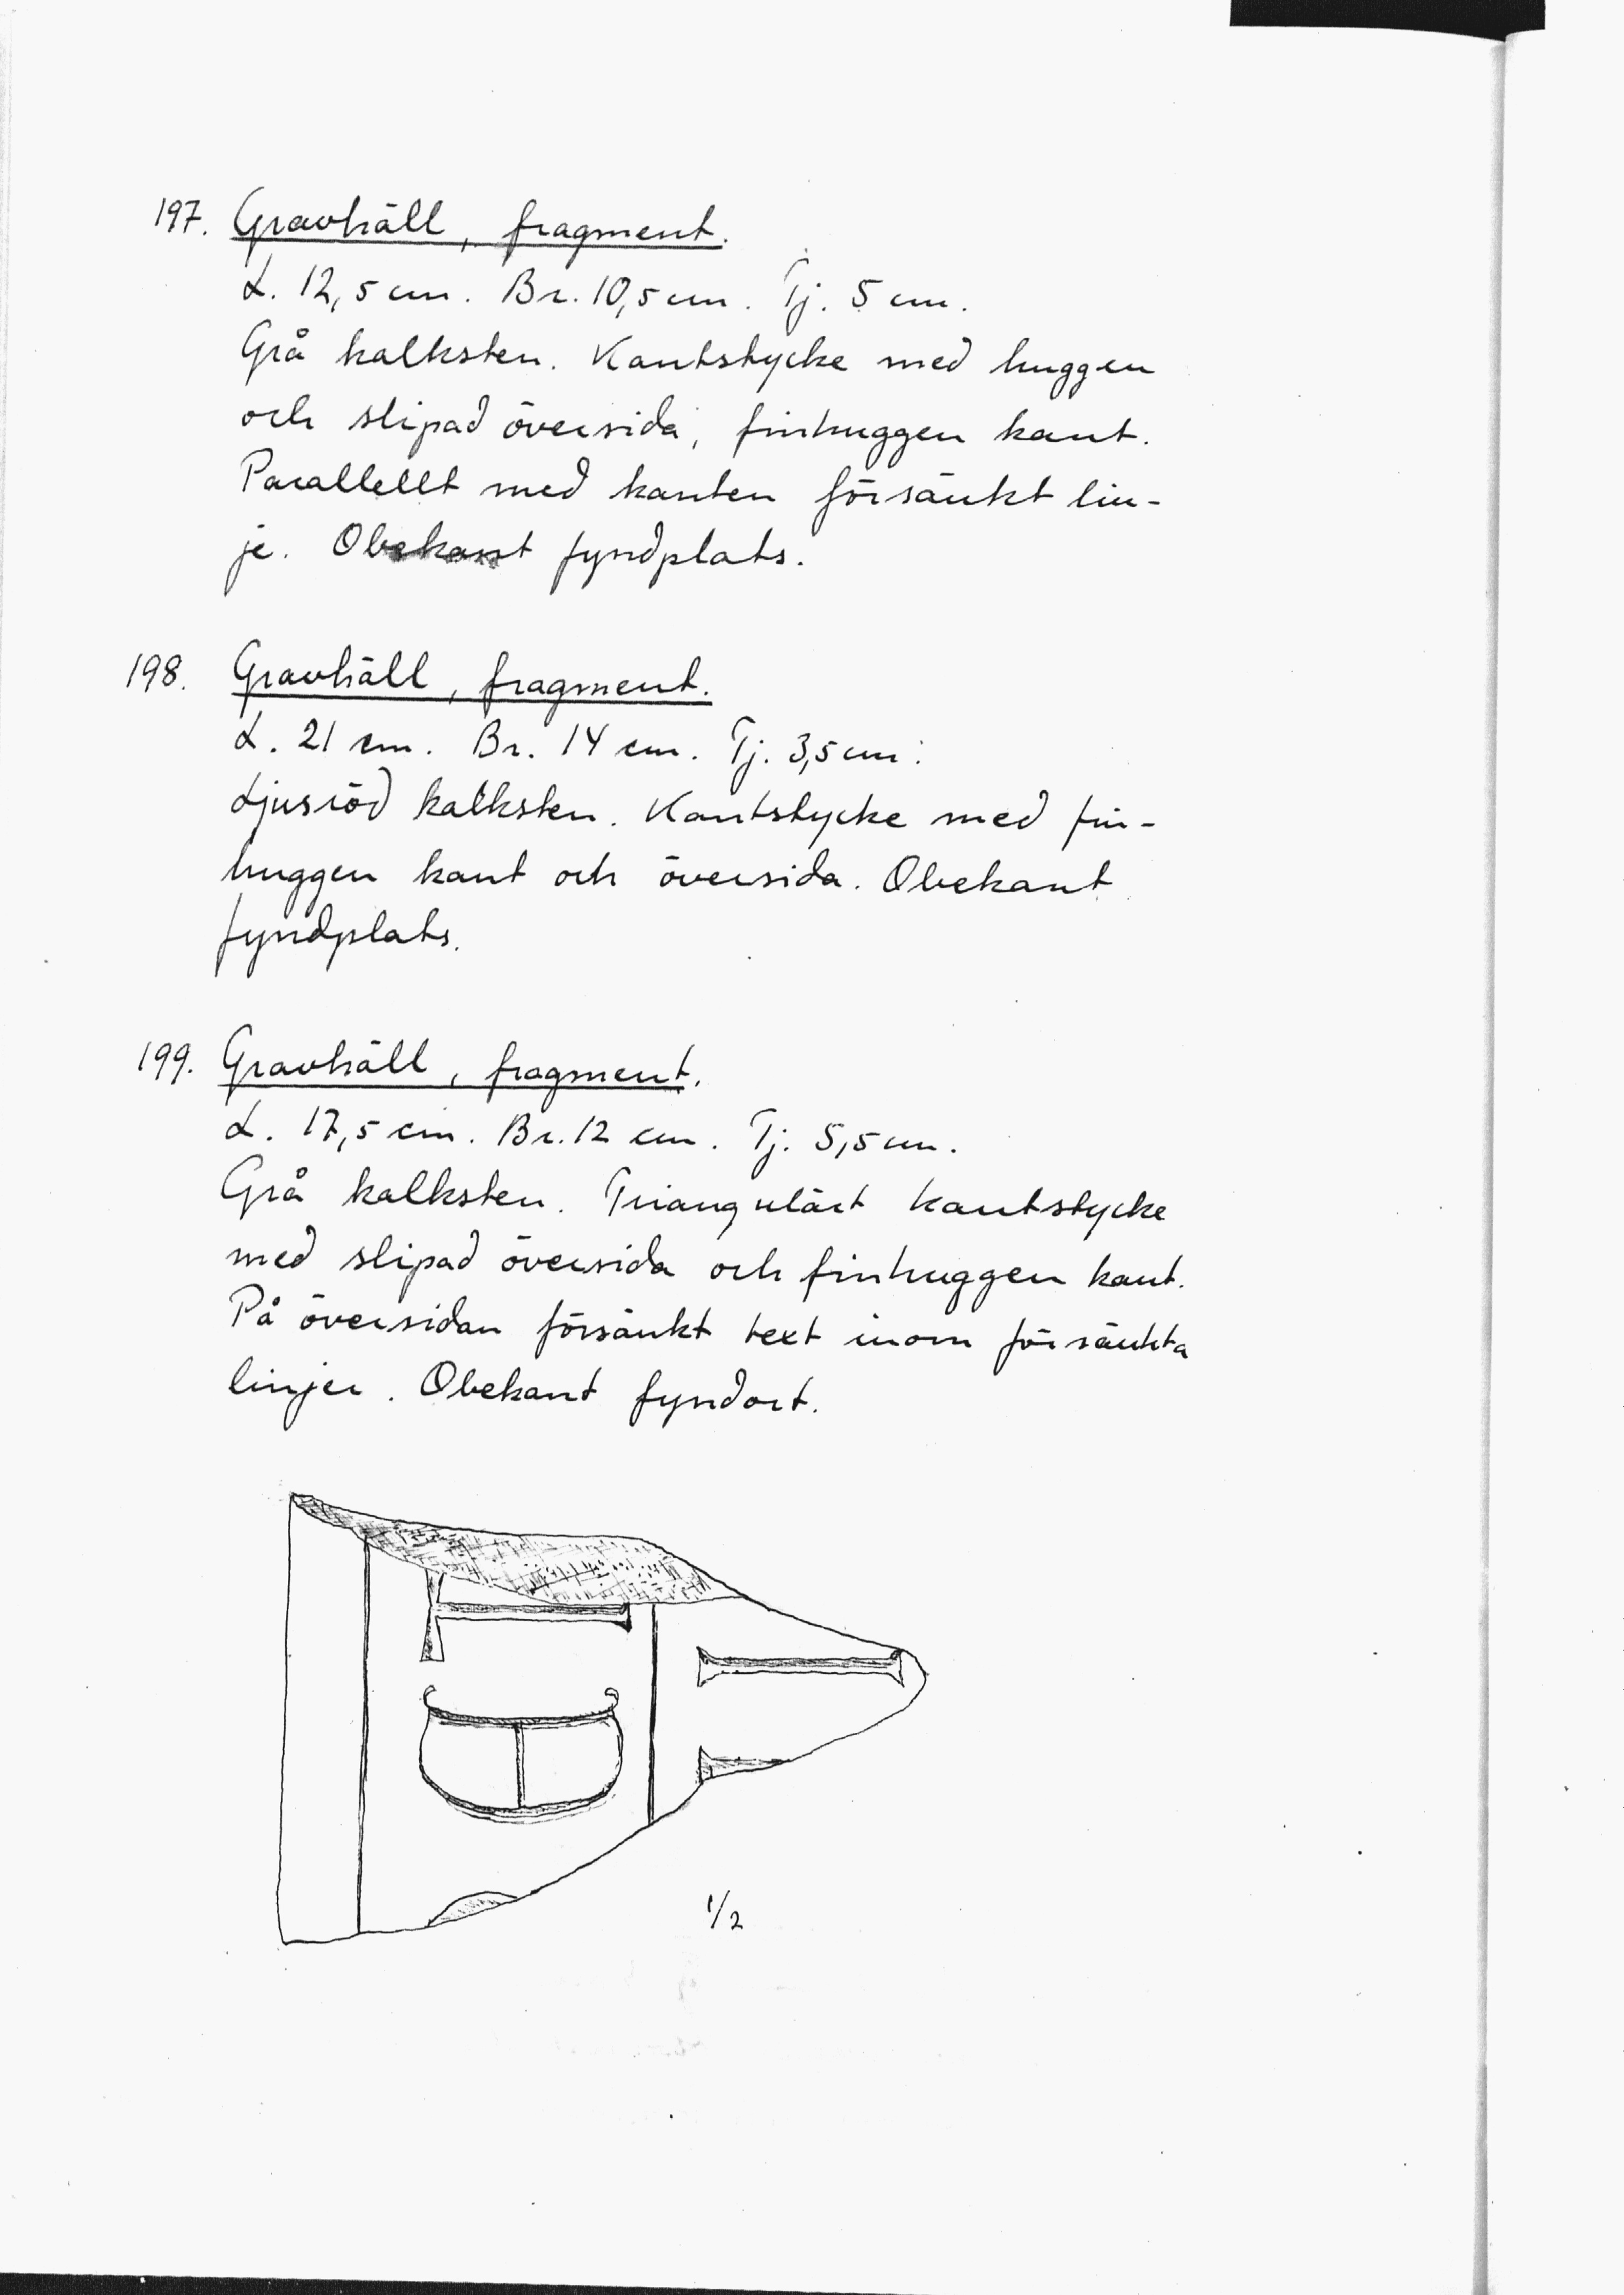 197. Gravhäll, fragment.
L. 12,5 cm. Br. 10,5 cm. Tj. 5 cm.
Grå kalksten. Kantstycke med huggen
och slipad översida, finhuggen kant.
Parallellt med kanten försänkt lin-
je. Obekant fyndplats.
198. Gravhäll, fragment.
L. 21 cm. Br. 14 cm. Tj. 3,5 cm.
Ljusröd kalksten. Kantstycke med fin-
huggen kant och översida. Obekant
fyndplats.
199. Gravhäll, fragment.
L. 17,5 cm. Br. 12 cm. Tj. 5,5 cm.
Grå kalksten. Triangulärt kantstycke
med slipad översida och finhuggen kant.
På översidan försänkt text inom försänkta
linjer. Obekant fyndort.
1/2